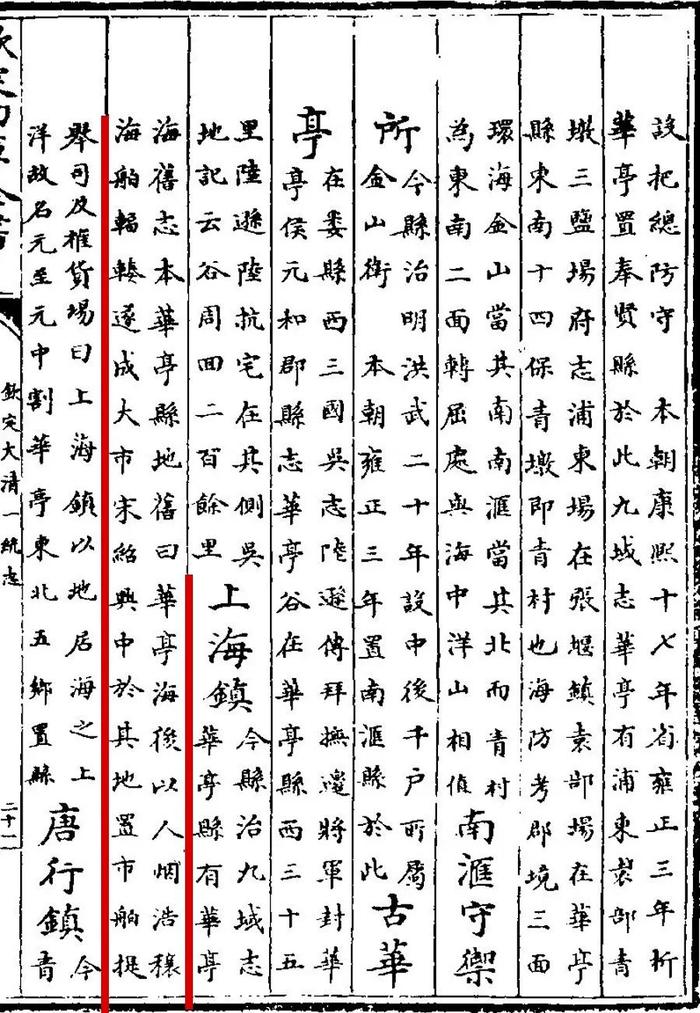 設把總防守　本朝康熙十七年省雍正三年析
華亭置奉賢縣於此九域志華亭有浦東袁部青
墩三鹽場府志浦東場在張堰鎮袁部場在華亭
縣東南十四保青墩即青村也海防考郡境三面
環海金山當其南南滙當其北而青村
為東南二面轉屈處與海中洋山相值
南滙守禦
所
今縣治明洪武二十年設中後千戶所屬
金山衛　本朝雍正三年置南滙縣於此
古華
亭
在婁縣西三國吳志陸遜傳拜撫邊將軍封華
亭侯元和郡縣志華亭谷在華亭縣西三十五
里陸遜陸抗宅在其側吳
地記云谷周回二百餘里
上海鎮
今縣治九域志
華亭縣有華亭
海舊志本華亭縣地舊曰華亭海後以人烟浩穰
海舶輻輳遂成大市宋紹興中於其地置市舶提
舉司及榷貨場曰上海鎮以地居海之上
洋故名元至元中割華亭東北五鄉置縣
唐行鎮
今
青
欽定大清一統志
二十一